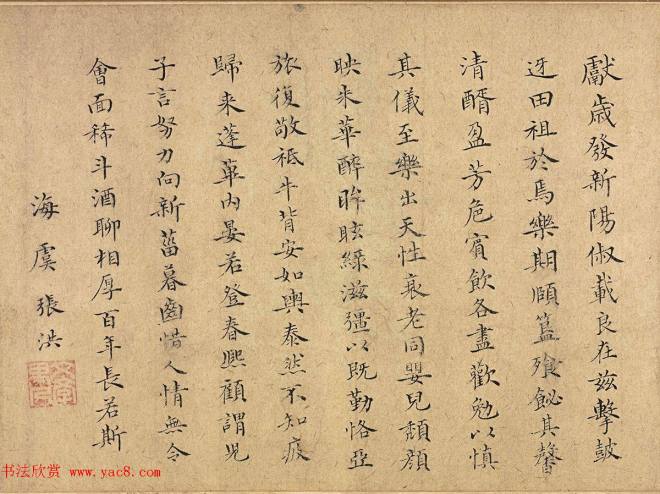 獻歳發新陽俶載良在兹擊鼓
迓田祖於焉樂期頤簋飱飶其馨
清醑盈芳卮賓飲各盡歡勉以慎
其儀至樂出天性衰老同嬰兒頹顔
映朱華醉眸眩緑滋彊以既勤恪亞
旅復敬祗牛背安如輿泰然不知疲
歸来蓬蓽内晏若登春熙顧謂児
子言努力向新菑暮齒惜人情無令
會面稀斗酒聊相厚百年長若斯
海虞張洪
书法欣赏 www.yac8.com